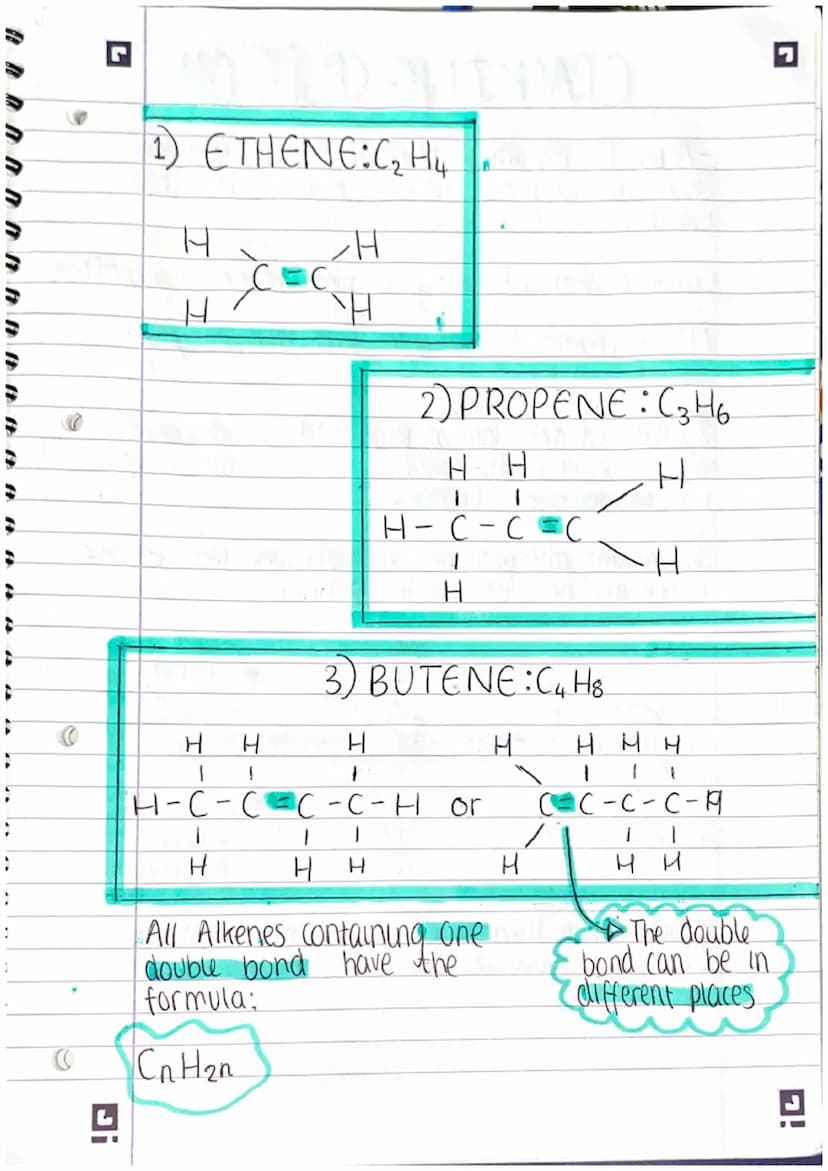 1) ETHENE: C₂H₄
H H
C = C
H H
2) PROPENE : C₃H₆
H H H
H - C - C = C
H
H
3) BUTENE : C₄H₈
H H H H H H H
H - C - C = C - C - H or C = C - C - C - H
H H H H H H
All Alkenes containing one
double bond have the
formula:
CnH2n
The double
bond can be in
different places